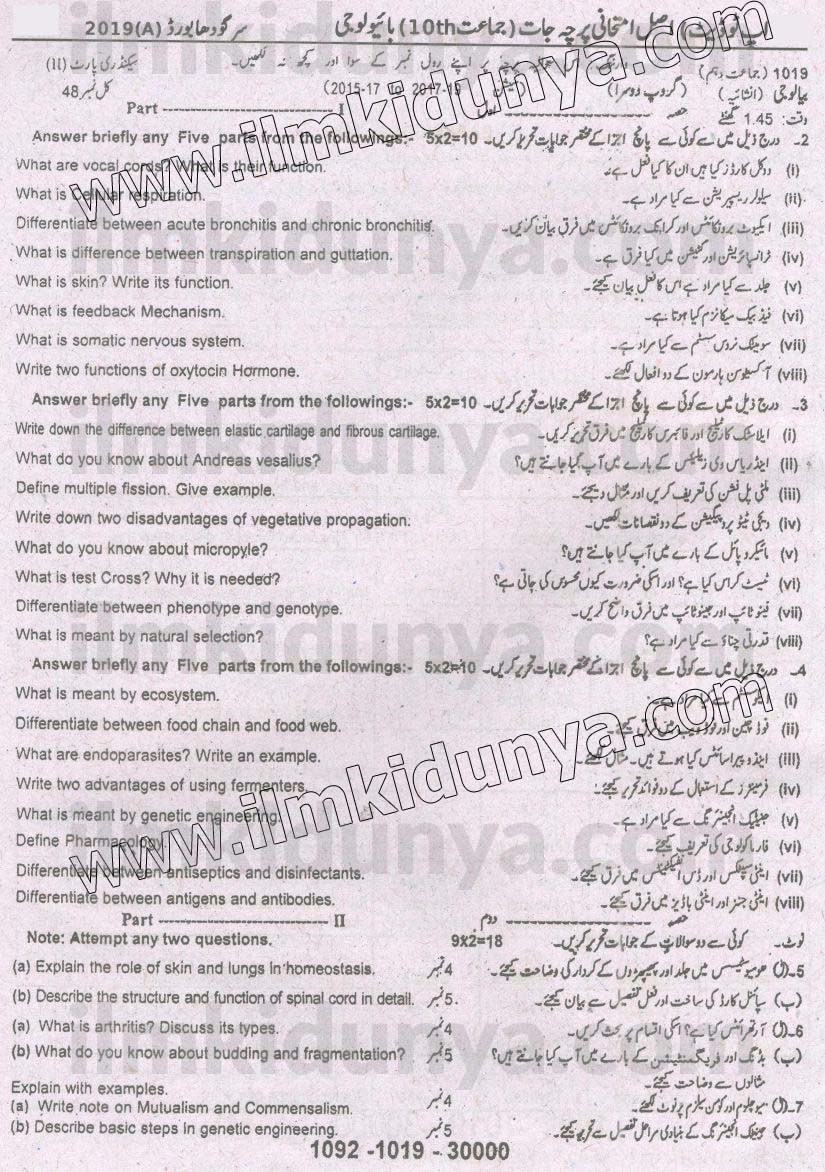 اپ ٹو ڈیٹ اصل امتحانی پرچہ جات (جماعت 10th) بائیولوجی سرگودھا بورڈ 2019(A)
1019 (جماعت دہم) پر اپنے رول نمبر کے سوا اور کچھ نہ لکھیں۔ سیکنڈری پارٹ (II)
بیالوجی (انشائیہ) (گروپ دوسرا) (سیشن 2015-17 to 2017-19) کل نمبر 48
وقت: 1.45 گھنٹے حصہ اول Part ------------------- I
Answer briefly any Five parts from the followings:- 5x2=10 2۔ درج ذیل میں سے کوئی سے پانچ اجزا کے مختصر جوابات تحریر کریں۔
What are vocal cords? What is their function. (i) ووکل کارڈز کیا ہیں ان کا کیا فعل ہے۔
What is Cellular respiration. (ii) سیلولر ریسپریشن سے کیا مراد ہے۔
Differentiate between acute bronchitis and chronic bronchitis. (iii) ایکیوٹ برونکائٹس اور کرانک برونکائٹس میں فرق بیان کریں۔
What is difference between transpiration and guttation. (iv) ٹرانسپائریشن اور گٹیشن میں کیا فرق ہے۔
What is skin? Write its function. (v) جلد سے کیا مراد ہے اس کا فعل بیان کیجئے۔
What is feedback Mechanism. (vi) فیڈ بیک میکانزم کیا ہوتا ہے۔
What is somatic nervous system. (vii) سومیٹک نروس سسٹم سے کیا مراد ہے۔
Write two functions of oxytocin Hormone. (viii) آکسیٹوسن ہارمون کے دو افعال لکھئے۔
Answer briefly any Five parts from the followings:- 5x2=10 3۔ درج ذیل میں سے کوئی سے پانچ اجزا کے مختصر جوابات تحریر کریں۔
Write down the difference between elastic cartilage and fibrous cartilage. (i) ایلاسٹک کارٹلیج اور فائبرس کارٹلیج میں فرق تحریر کریں۔
What do you know about Andreas vesalius? (ii) اینڈریاس ویزیلیئس کے بارے میں آپ کیا جانتے ہیں؟
Define multiple fission. Give example. (iii) ملٹی پل فشن کی تعریف کریں اور مثال دیجئے۔
Write down two disadvantages of vegetative propagation. (iv) ویجی ٹیٹو پروپیگیشن کے دو نقصانات لکھیں۔
What do you know about micropyle? (v) مائیکرو پائل کے بارے میں آپ کیا جانتے ہیں؟
What is test Cross? Why it is needed? (vi) ٹیسٹ کراس کیا ہے؟ اور اسکی ضرورت کیوں محسوس کی جاتی ہے؟
Differentiate between phenotype and genotype. (vii) فینوٹائپ اور جینوٹائپ میں فرق واضح کریں۔
What is meant by natural selection? (viii) قدرتی چناؤ سے کیا مراد ہے؟
Answer briefly any Five parts from the followings:- 5x2=10 4۔ درج ذیل میں سے کوئی سے پانچ اجزا کے مختصر جوابات تحریر کریں۔
What is meant by ecosystem. (i) سے کیا مراد ہے۔
Differentiate between food chain and food web. (ii) فوڈ چین اور فوڈ ویب میں فرق کیجئے۔
What are endoparasites? Write an example. (iii) اینڈو پیراسائٹس کیا ہوتے ہیں۔ مثال لکھئے۔
Write two advantages of using fermenters. (iv) فرمینٹرز کے استعمال کے دو فوائد تحریر کیجئے۔
What is meant by genetic engineering. (v) جینیٹک انجینئرنگ سے کیا مراد ہے۔
Define Pharmacology. (vi) فارماکولوجی کی تعریف کیجئے۔
Differentiate between antiseptics and disinfectants. (vii) اینٹی سیپٹکس اور ڈس انفیکٹینٹس میں فرق کیجئے۔
Differentiate between antigens and antibodies. (viii) اینٹی جنز اور اینٹی باڈیز میں فرق کیجئے۔
Part ------------------- II حصہ دوم
Note: Attempt any two questions. 9x2=18 نوٹ۔ کوئی سے دو سوالات کے جوابات تحریر کریں۔
(a) Explain the role of skin and lungs in homeostasis. 4 نمبر 5۔(ا) ہومیوسٹیسس میں جلد اور پھیپھڑوں کے کردار کی وضاحت کیجئے۔
(b) Describe the structure and function of spinal cord in detail. 5 نمبر (ب) سپائنل کارڈ کی ساخت اور فعل تفصیل سے بیان کیجئے۔
(a) What is arthritis? Discuss its types. 4 نمبر 6۔(ا) آرتھرائٹس کیا ہے؟ اسکی اقسام پر بحث کریں۔
(b) What do you know about budding and fragmentation? 5 نمبر (ب) بڈنگ اور فریگمنٹیشن کے بارے میں آپ کیا جانتے ہیں؟
Explain with examples. مثالوں سے وضاحت کیجئے۔
(a) Write note on Mutualism and Commensalism. 4 نمبر 7۔(ا) میوچلزم اور کومن سیلزم پر نوٹ لکھئے۔
(b) Describe basic steps in genetic engineering. 5 نمبر (ب) جینیٹک انجینئرنگ کے بنیادی مراحل تفصیل سے تحریر کیجئے۔
1092 -1019 - 30000
www.ilmkidunya.com
www.ilmkidunya.com
ilmkidunya.com
ilmkidunya.com
ilmkidunya.com
ilmkidunya.com
ilmkidunya.com